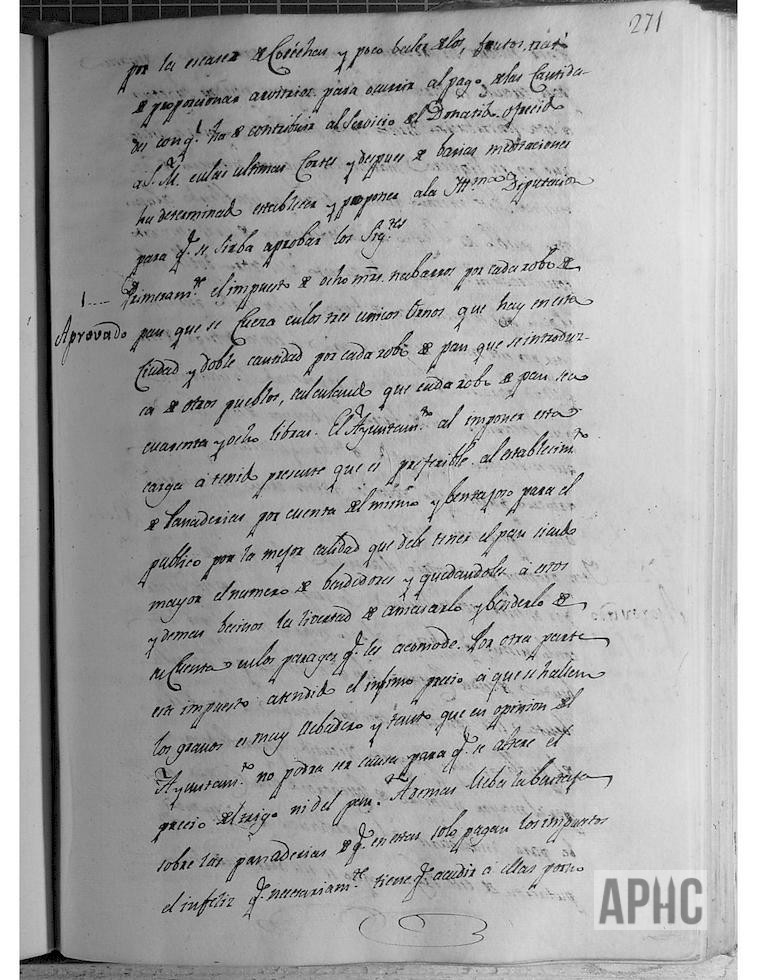 271
por la escasez de Cosechas y poco balor de los frutos, trató
de proporcionar arvitrios para ocurrir al pago de las Cantida-
des con q.e ha de contribuir al Servicio del Donativo ofrecido
a S. M. en las ultimas Cortes y despues de barias meditaciones
ha determinado establecer y proponer a la Ill.ma Diputacion
para q.e se sirba aprobar los Sig.tes
1.... Primeram.te el impuesto de ocho mrs. nabarros por cada robo de
Aprovado pan que se Cueza en los tres unicos Ornos que hay en esta
Ciudad y doble cantidad por cada robo de pan que se introduz-
ca de otros pueblos, calculando que cada robo de pan sea
cuarenta y ocho libras. El Ayuntam.to al imponer esta
carga á tenido presente que es preferible al establecim.to
de Panaderias por cuenta del mismo y bentajoso para el
publico por la mejor calidad que debe tener el pan siendo
mayor el numero de bendedores y quedandoles a estos
y demas becinos la libertad de amasarlo y benderlo de
su Cuenta en los parages q.e les acomode. Por otra parte
este impuesto atendido el infimo precio a que se hallan
los granos es muy llebadero y tanto que en opinion del
Ayuntam.to no podra ser causa para q.e se altere el
precio del trigo ni del pan. Ademas lleba la bentaja
sobre las panaderias de q.e en estas solo pagan los impuestos
el infeliz q.e necesariam.te tiene q.e acudir á ellas por no
APHC